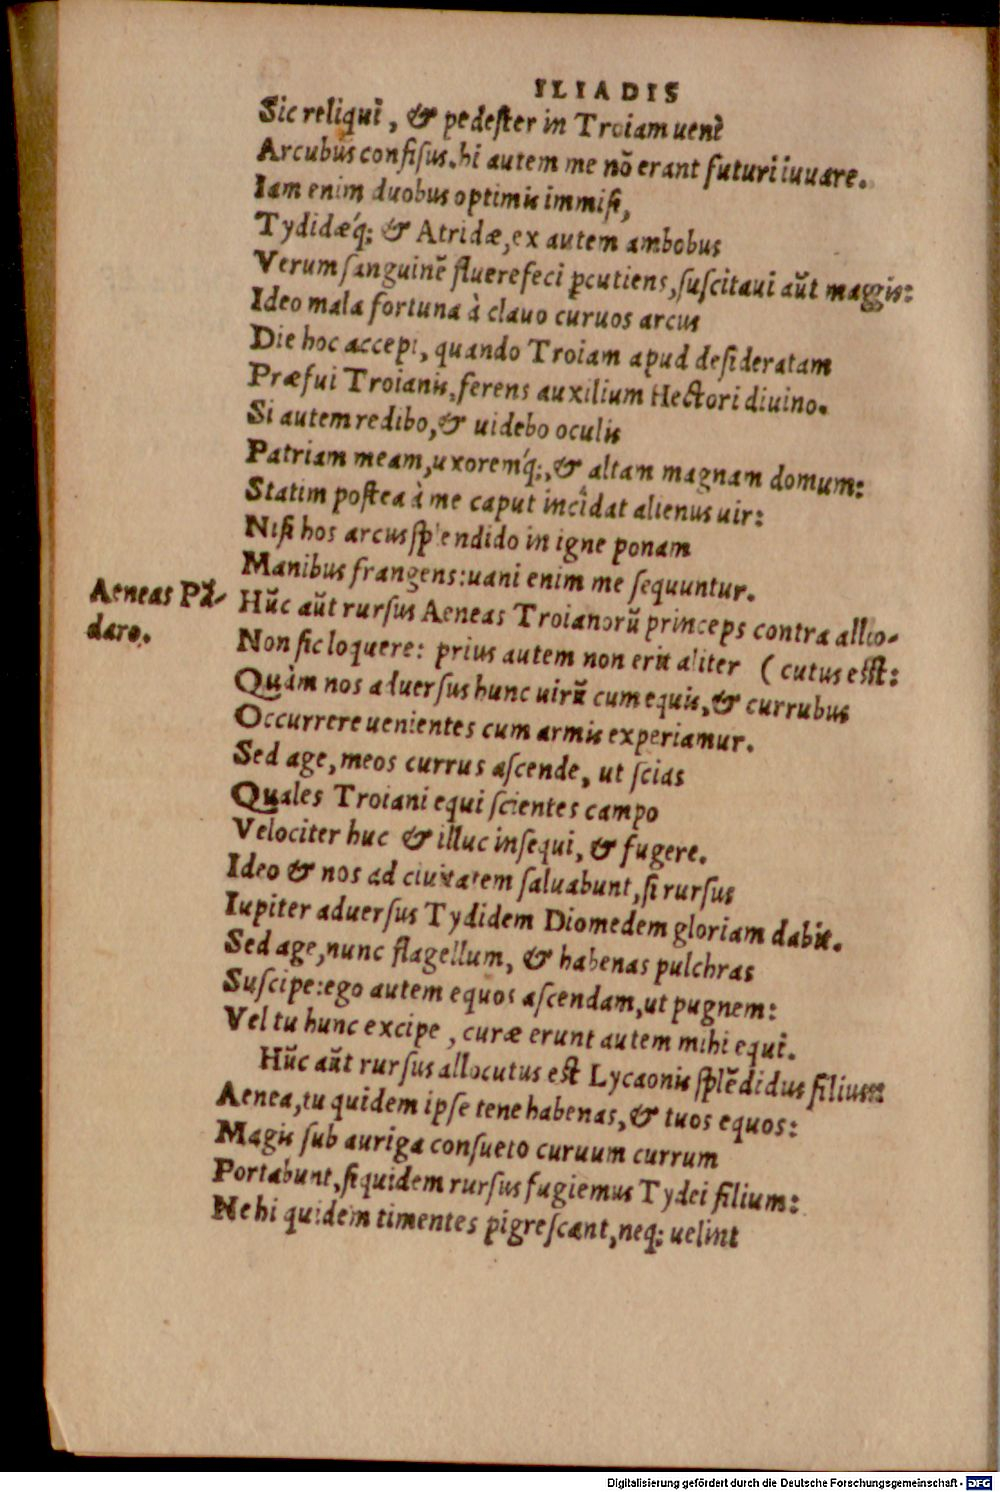 ILIADIS
Sic reliqui, & pedester in Troiam uenē
Arcubus confisus. hi autem me nō erant futuri iuuare.
Iam enim duobus optimis immisi,
Tydidæq́; & Atridæ, ex autem ambobus
Verum sanguinē fluere feci ꝑcutiens, suscitaui aũt maggis:
Ideo mala fortuna à clauo curuos arcus
Die hoc accepi, quando Troiam apud desideratam
Præfui Troianis, ferens auxilium Hectori diuino.
Si autem redibo, & uidebo oculis
Patriam meam, uxoremq́;, & altam magnam domum:
Statim postea à me caput incîdat alienus uir:
Nisi hos arcus splendido in igne ponam
Manibus frangens: uani enim me sequuntur.
Aeneas Pā-
daro.
Hũc aũt rursus Aeneas Troianorũ princeps contra allo-
Non sic loquere: prius autem non erit aliter (cutus est:
Quàm nos aduersus hunc uirũ cum equis, & curribus
Occurrere uenientes cum armis experiamur.
Sed age, meos currus ascende, ut scias
Quales Troiani equi scientes campo
Velociter huc & illuc insequi, & fugere.
Ideo & nos ad ciuitatem saluabunt, si rursus
Iupiter aduersus Tydidem Diomedem gloriam dabit.
Sed age, nunc flagellum, & habenas pulchras
Suscipe: ego autem equos ascendam, ut pugnem:
Vel tu hunc excipe, curæ erunt autem mihi equi.
Hũc aũt rursus allocutus est Lycaonis splēdidus filius:
Aenea, tu quidem ipse tene habenas, & tuos equos:
Magis sub auriga consueto curuum currum
Portabunt, siquidem rursus fugiemus Tydei filium:
Ne hi quidem timentes pigrescant, neq; uelint
Digitalisierung gefördert durch die Deutsche Forschungsgemeinschaft - DFG